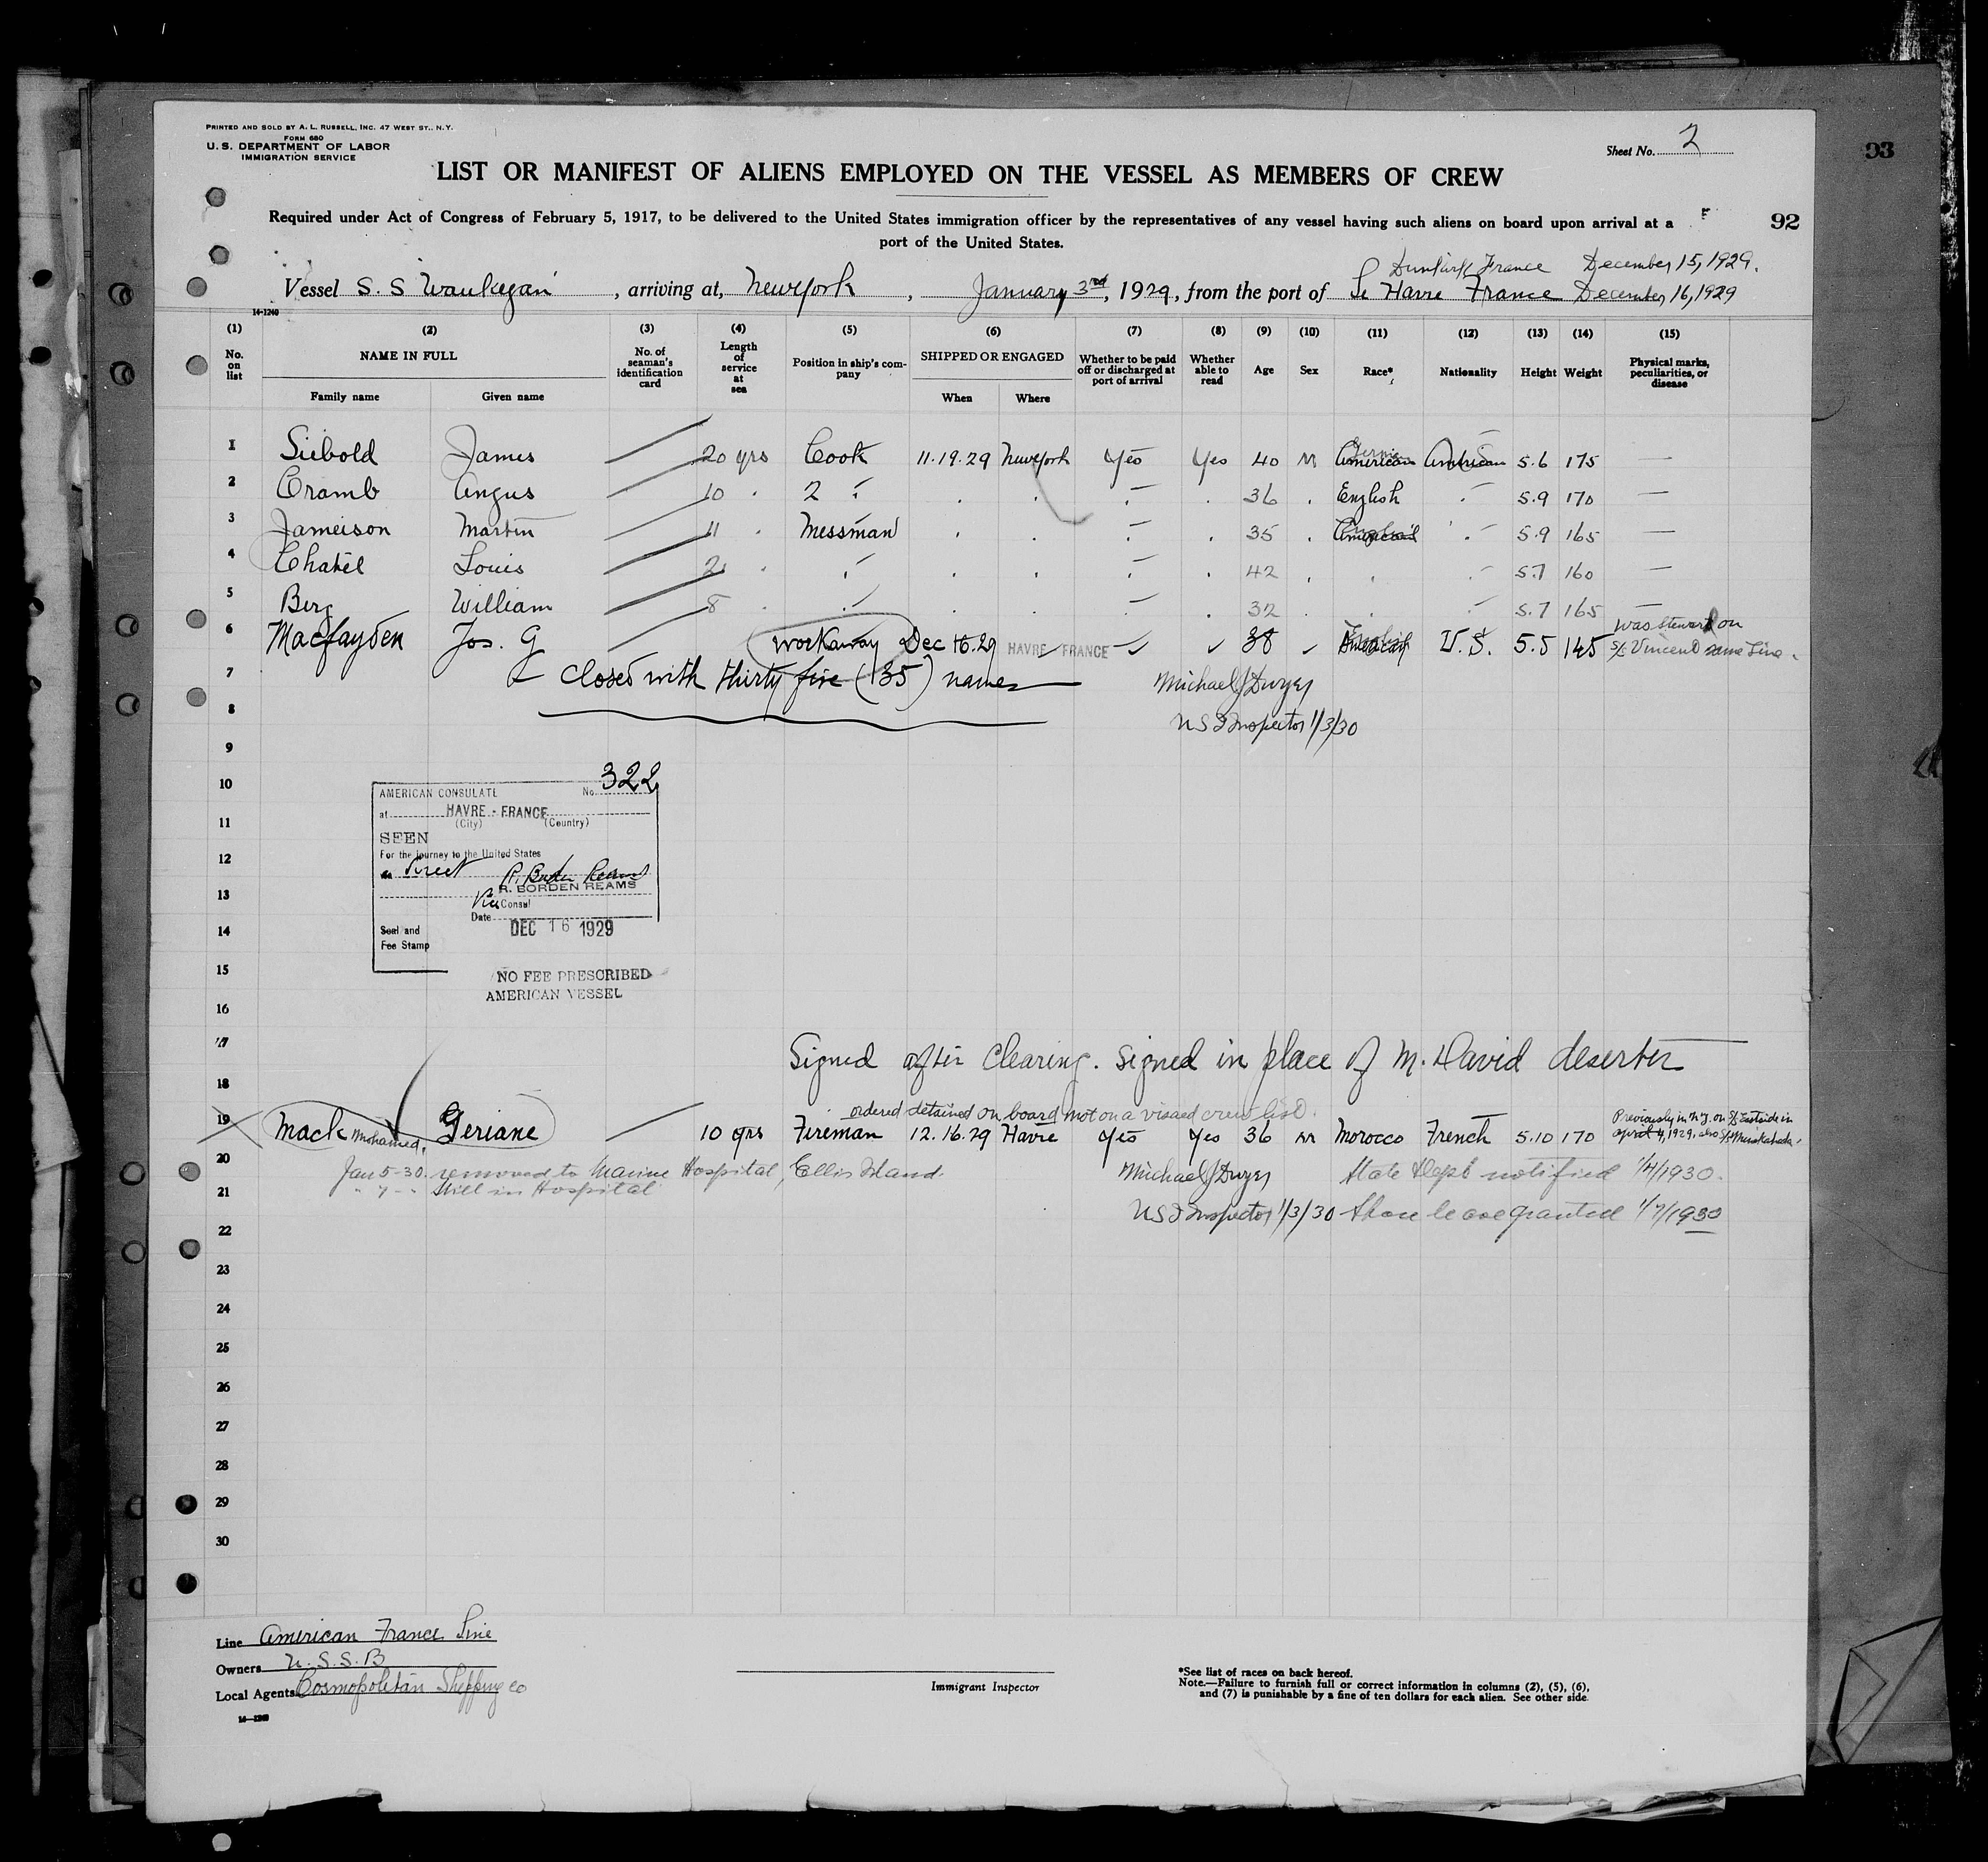 PRINTED AND SOLD BY A. L. RUSSELL, INC. 47 WEST ST., N.Y.
FORM 680
U. S. DEPARTMENT OF LABOR
IMMIGRATION SERVICE
Sheet No. 2
93
LIST OR MANIFEST OF ALIENS EMPLOYED ON THE VESSEL AS MEMBERS OF CREW
Required under Act of Congress of February 5, 1917, to be delivered to the United States immigration officer by the representatives of any vessel having such aliens on board upon arrival at a
port of the United States.
92
Dunkirk France December 15, 1929.
Vessel S. S Waukegan, arriving at, New York, January 3rd, 1929, from the port of Le Havre France December 16, 1929
14-1240
(1) (2) (3) (4) (5) (6) (7) (8) (9) (10) (11) (12) (13) (14) (15)
No. on list NAME IN FULL No. of seaman's identification card Length of service at sea Position in ship's company SHIPPED OR ENGAGED Whether to be paid off or discharged at port of arrival Whether able to read Age Sex Race* Nationality Height Weight Physical marks, peculiarities, or disease
Family name Given name When Where
1 Siebold James 20 yrs Cook 11.19.29 New York Yes Yes 40 M American American 5.6 175 —
2 Cramb Angus 10 . 2 " . . " . 36 . English " 5.9 170 —
3 Jameison Martin 11 . Messman . . " . 35 . " 5.9 165 —
4 Chatel Louis . " . . " . 42 . . " 5.7 160 —
5 Berg William 8 . " . . " . 32 . . " 5.7 165 —
6 Macfayden Jos. G workaway Dec 16.29 HAVRE - FRANCE ✓ ✓ 38 ✓ U.S. 5.5 145 was steward on
S/S Vincent same Line.
7 Closed with thirty five (35) names
Michael J Dwyer
8 US I Inspector 1/3/30
9
10
11
12
13
14
15
16
AMERICAN CONSULATE No. 322
at HAVRE - FRANCE
(City) (Country)
SEEN
For the journey to the United States
Direct R. Borden Reams
R. BORDEN REAMS
Vice Consul
Date DEC 16 1929
Seal and
Fee Stamp
NO FEE PRESCRIBED
AMERICAN VESSEL
17 Signed after Clearing. Signed in place of M. David deserter
18
ordered detained on board not on a visaed crew list.
19 Mack Mohamed, Geriane 10 yrs Fireman 12.16.29 Havre Yes Yes 36 M Morocco French 5.10 170 Previously in N.Y. on S/S Eastside in
April 4, 1929, also
20 Jan 5-30. removed to Marine Hospital, Ellis Island. Michael J Dwyer State Dept notified 1/4/1930.
21 " 7 - " Still in Hospital
US I Inspector 1/3/30 Shore leave granted 1/7/1930
22
23
24
25
26
27
28
29
30
Line American France Line
Owners U. S. S. B
Local Agents Cosmopolitan Shipping Co
14—1240
Immigrant Inspector
*See list of races on back hereof.
Note.—Failure to furnish full or correct information in columns (2), (5), (6),
and (7) is punishable by a fine of ten dollars for each alien. See other side.